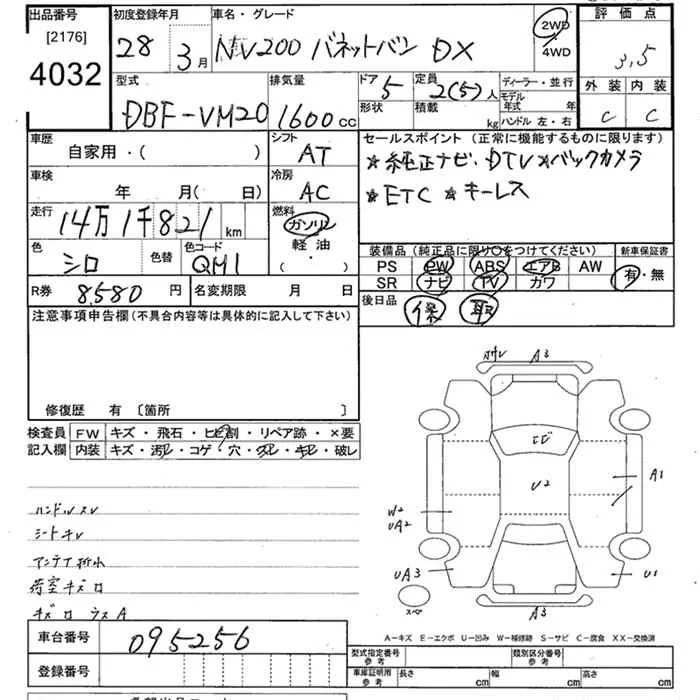 出品番号 初度登録年月 車名・グレード 2WD 4WD 評価点
[2176]
4032
28 3月 NV200 バネットバン DX 3.5
型式 排気量 ドア 5 定員 2(5)人 ディーラー・並行 外装 内装
DBF-VM20 1600cc 形状 積載 kg モデル年式 年 ハンドル 左・右 C C
車歴 自家用・( ) シフト AT セールスポイント (正常に機能するものに限ります)
★純正ナビ、DTV★バックカメラ
★ETC ★キーレス
車検 年 月( 日) 冷房 AC
走行 14万1千821km 燃料 ガソリン 軽油 ( ・ )
装備品(純正品に限り○をつけてください) 新車保証書
色 シロ 色替 色コード QM1
PS PW ABS エアB AW 有・無
SR ナビ TV カワ
R券 8,580円 名変期限 月 日 後日品 保 取
注意事項申告欄(不具合内容等は具体的に記入して下さい)
修復歴 有 〔箇所 〕
検査員 FW キズ・飛石・ヒビ割・リペア跡・×要
記入欄 内装 キズ・汚レ・コゲ・穴・スレ・キレ・破レ
A3
ヒビ
U2
A1
W2
UA2
UA3
U1
スペア
A3
ハンドルスレ
シートキレ
アンテナ折れ
荷室キズ□
A-キズ E-エクボ U-凹み W-補修跡 S-サビ C-腐食 XX-交換済
車台番号 095256
型式指定番号 参考 類別区分番号 参考
登録番号
車庫証明用 参考 長さ cm 幅 cm 高さ cm